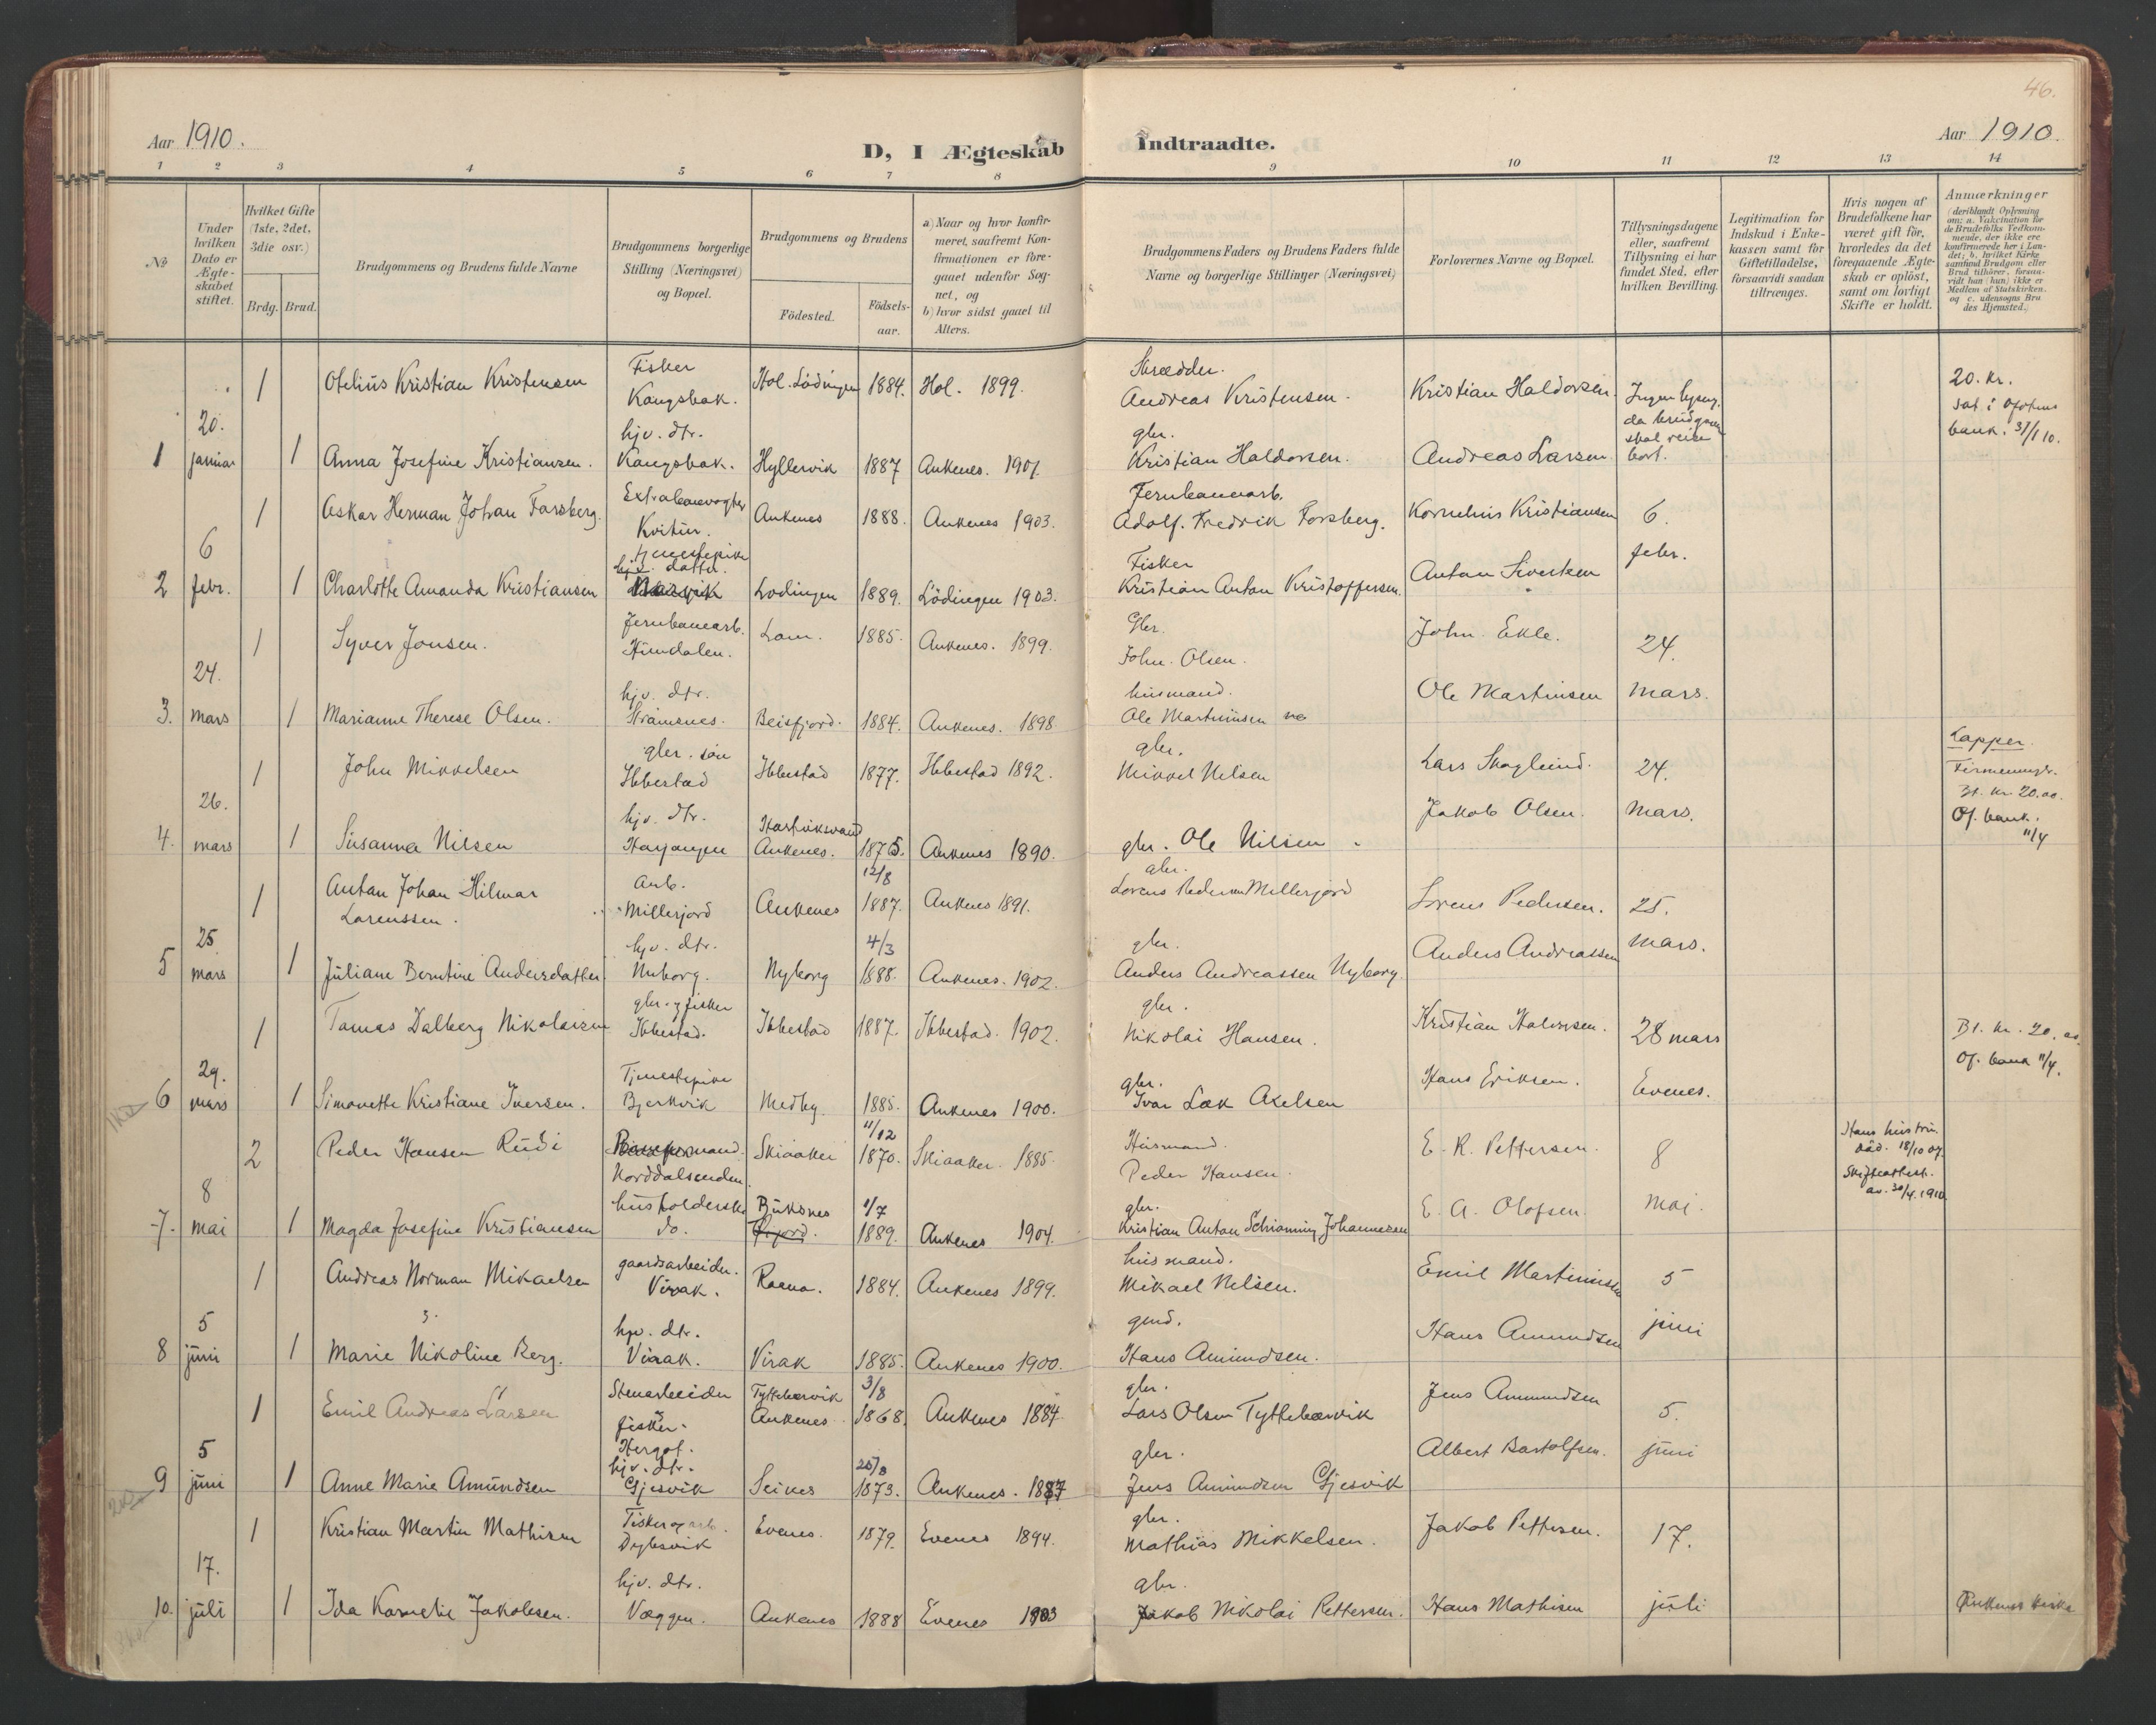 46.
Aar 1910.
D, I Ægteskab Indtraadte.
Aar 1910.
1 2 3 4 5 6 7 8 9 10 11 12 13 14
No
Under hvilken Dato er Ægte-skabet stiftet.
Hvilket Gifte (1ste, 2det, 3die osv.)
Brdg. Brud.
Brudgommens og Brudens fulde Navne
Brudgommens borgerlige Stilling (Næringsvei) og Bopæl.
Brudgommens og Brudens
Födested. Födsels-aar.
a) Naar og hvor konfir-meret, saafremt Kon-firmationen er fore-gaaet udenfor Sog-net, og
b) hvor sidst gaaet til Alters.
Brudgommens Faders og Brudens Faders fulde Navne og borgerlige Stillinger (Næringsvei)
Forlovernes Navne og Bopæl.
Tillysningsdagene eller, saafremt Tillysning ei har fundet Sted, efter hvilken Bevilling.
Legitimation for Indskud i Enke-kassen samt for Giftetilladelse, forsaavidt saadan tiltrænges.
Hvis nogen af Brudefolkene har været gift för, hvorledes da det foregaaende Ægte-skab er oplöst, samt om lovligt Skifte er holdt.
Anmærkninger
(deriblandt Oplysning om: a. Vakcination for de Brudefolks Vedkom-mende, der ikke ere konfirmerede her i Lan-det; b. hvilket Kirke samfund Brudgom eller Brud tilhörer, forsaa-vidt han (hun) ikke er Medlem af Statskirken, og c. udensogns Bru des Hjemsted.)
1 Otelius Kristian Kristensen Fisker Kangsbak. Hol. Lödingen 1884. Hol. 1899. Skrædder. Andreas Kristensen. Kristian Haldorsen. Ingen lysng. da brudgom skal reise bort. 20. kr. sat i Ofotens bank. 31/1 10.
1 20. januar 1 Anna Josefine Kristiansen. hjv. dtr. Kangsbak. Hyllervik 1887 Ankenes. 1901. gbr. Kristian Haldorsen. Andreas Larsen
1 Oskar Herman Johan Forsberg. Extrabanevogter Kvitur. Ankenes 1888. Ankenes 1903. Jernbanearb. Adolf. Fredrik Forsberg. Kornelius Kristiansen 6. febr.
2 6 febr. 1 Charlotte Amanda Kristiansen tjenestepike hj.v. datter. Lodingen 1889. Lödingen 1903. Fisker Kristian Anton Kristoffersen. Anton Sivertsen
1 Syver Jonsen. Jernbanearb. Hundalen. Lom. 1885. Ankenes. 1899. Gbr. John. Olsen. John. Ekle. 24. mars.
3. 24. mars 1 Marianne Therese Olsen. hjv. dtr. Straumsnes. Beisfjord. 1884. Ankenes. 1898 husmand. Ole Martinusen Ole Martinsen
1 John Mikkelsen gbr. søn Ibbestad Ibbestad 1877. Ibbestad 1892. gbr. Mikkel Nilsen Lars Skoglund. 24. mars. Lapper. Bt. kr 20.00. Of. bank. 11/4
4. 26. mars 1 Susanna Nilsen hjv. dtr. Herjangen Hartviksvand Ankenes. 1875. Ankenes 1890. gbr. Ole Nilsen Jakob Olsen.
1 Anton Johan Hilmar Lorenssen. arb. Millerjord Ankenes 12/8 1887. Ankenes 1891. gbr. Lorens Pedersen Millerjord Lorens Pedersen. 25. mars.
5 25 mars 1 Juliane Berntine Andersdatter hjv. dtr. Nuborg. Nyborg 4/3 1888. Ankenes. 1902. gbr. Anders Andreassen Nyborg. Anders Andreassen
1 Tomas Dalberg Nikolaisen gbr. og fisker Ibbestad. Ibbestad 1887. Ibbestad. 1902. gbr. Nikolai Hansen. Kristian Halvorsen. 28 mars Evenes. Bt. kr. 20.00. Of. bank 11/4.
6 29. mars 1 Simonette Kristiane Iversen. Tjenestepike Bjerkvik Medby 1885. Ankenes 1900. gbr. Ivar Lok Axelsen Hans Eriksen.
2 Peder Hansen Rudi Norddalsenden. Skiaaker 11/12 1870. Skiaaker. 1885. Husmand. Peder Hansen. E. R. Pettersen. 8 mai. Hans hustru död. 18/10 07. Skifteattest. av. 30/4. 1910
7. 8 mai 1 Magda Josefine Kristiansen husholderske do. Buksnes 1/7 1889. Ankenes 1904. gbr. Kristian Anton Schianning Johannesen E. A. Olofsen.
1 Andreas Norman Mikaelsen gaardsarbeider. Virak. Raena. 1884. Ankenes 1899. husmand. Mikael Nilsen. Emil Martinusen 5 juni
8 5 juni 1 Marie Nikoline Berg. hjv. dtr. Virak. Virak 1885. Ankenes 1900. gmd. Hans Amundsen. Hans Amundsen
1 Emil Andreas Larsen Stenarbeider og fisker. Hergot. Tyttebærvik Ankenes 3/8 1868. Ankenes 1884. gbr. Lars Olsen Tyttebærvik Jens Ammundsen 5. juni
9 5 juni 1 Anne Marie Amundsen hjv. dtr. Gjesvik Seines 25/8 1873. Ankenes. 1887 gbr. Jens Amundsen Gjesvik Albert Bertolfsen.
1 Kristian Martin Mathisen Fisker og arb. Dybsvik Evenes. 1879. Evenes 1894. gbr. Mathias Mikkelsen. Jakob Pettersen. 17. juli
10. 17. juli 1 Ida Kornelie Jakobsen. hjv. dtr. Væggen. Ankenes 1888 Evenes 1903 gbr. Jakob Nikolai Pettersen. Hans Mathisen Ankenes kirke